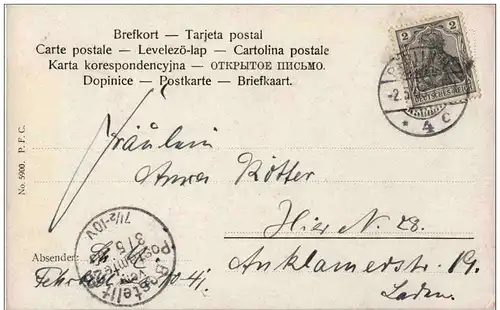 Brefkort — Tarjeta postal
Carte postale — Levelezö-lap — Cartolina postale
Karta korespondencyjna — ОТКРЫТОЕ ПИСЬМО.
Dopinice — Postkarte — Briefkaart.
2 2
DEUTSCHES REICH
* 4 c
No. 5900. P. F. C.
Fräulein
Anna Rötter
Hier N. 28.
Anklamerstr. 19.
Laden.
Absender:
Bestellt
vom
Postamte
31 5
7½-10V